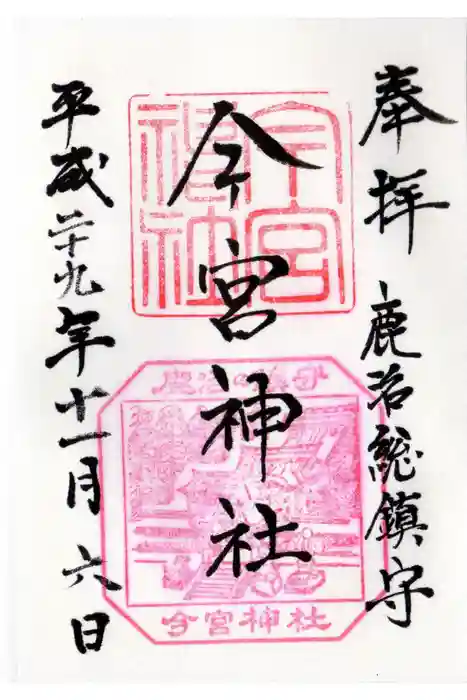 奉拝 鹿沼総鎮守
今宮神社
平成二十九年十一月六日
今宮神社
今宮神社